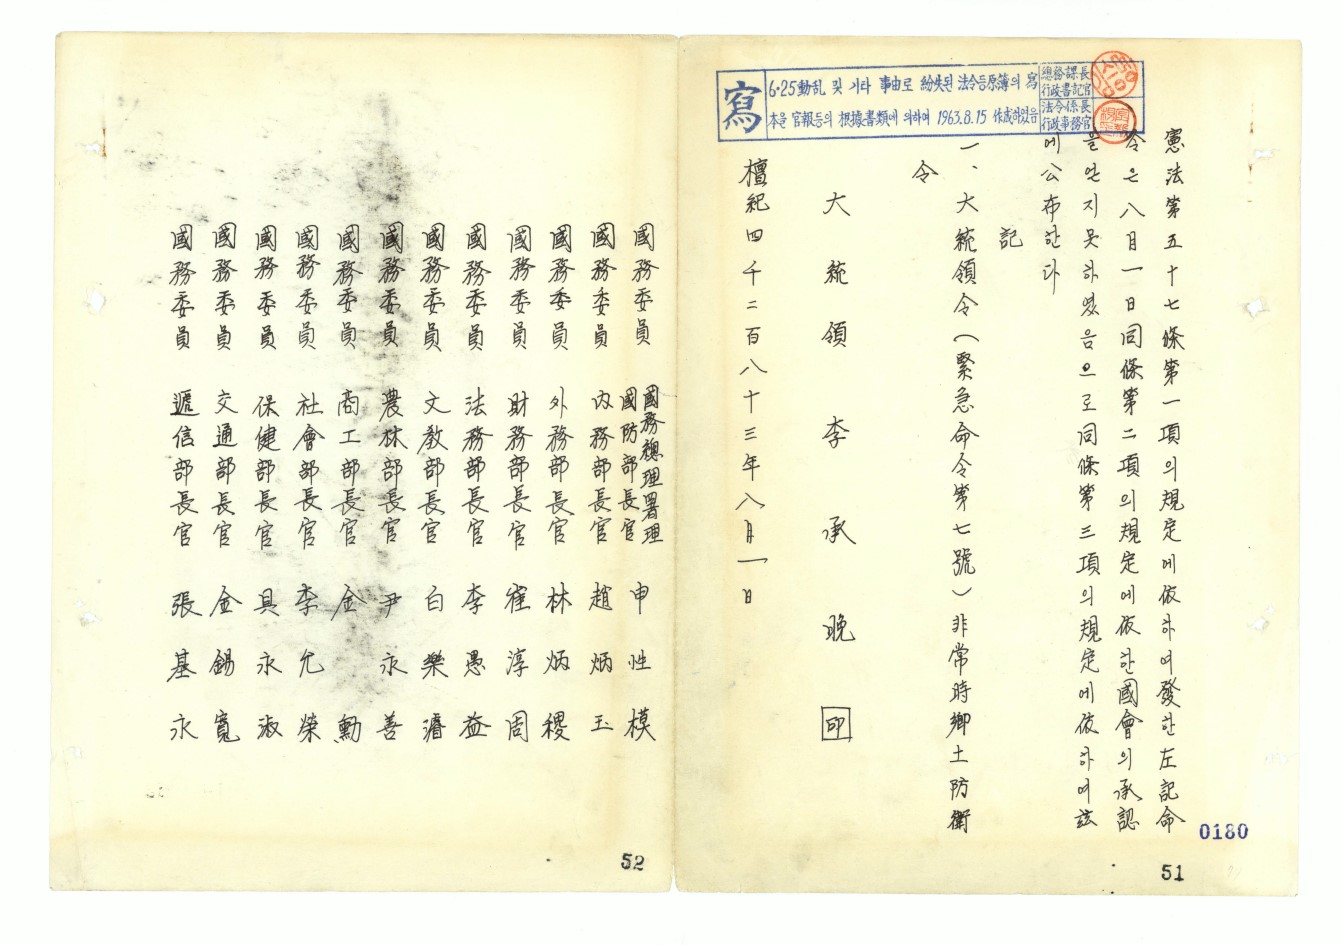 寫
6·25動乱 및 기타 事由로 紛失된 法令等原簿의 寫
本을 官報等의 根據書類에 의하여 1963.8.15 作成하였음
總務課長
行政書記官
法令係長
行政事務官
憲法第五十七條第一項의規定에依하여發한左記命
令은八月一日同條第二項의規定에依한國會의承認
을얻지못하였음으로同條第三項의規定에依하여玆
에公布한다
記
一、大統領令(緊急命令第七號)非常時鄕土防衛
令
大統領 李承晩 印
檀紀四千二百八十三年八月一日
0180
51
國務委員 國務總理署理 國防部長官 申性模
國務委員 內務部長官 趙炳玉
國務委員 外務部長官 林炳稷
國務委員 財務部長官 崔淳周
國務委員 法務部長官 李愚益
國務委員 文敎部長官 白樂濬
國務委員 農林部長官 尹永善
國務委員 商工部長官 金勳
國務委員 社會部長官 李允榮
國務委員 保健部長官 具永淑
國務委員 交通部長官 金錫寬
國務委員 遞信部長官 張基永
52